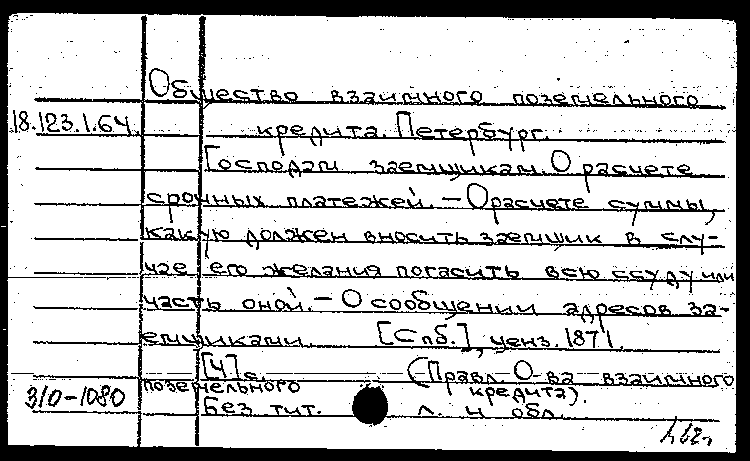 Общество взаимного поземельного
18.123.1.64. кредита. Петербург.
Господам заемщикам. О расчете
срочных платежей. – О расчете суммы,
какую должен вносить заемщик в слу-
чае его желания погасить всю ссуду или
часть оной. – О сообщении адресов за-
емщиками. [Спб.], ценз. 1871.
[4] с. (Правл. О-ва взаимного
поземельного кредита).
310-1080
Без тит. л. и обл.